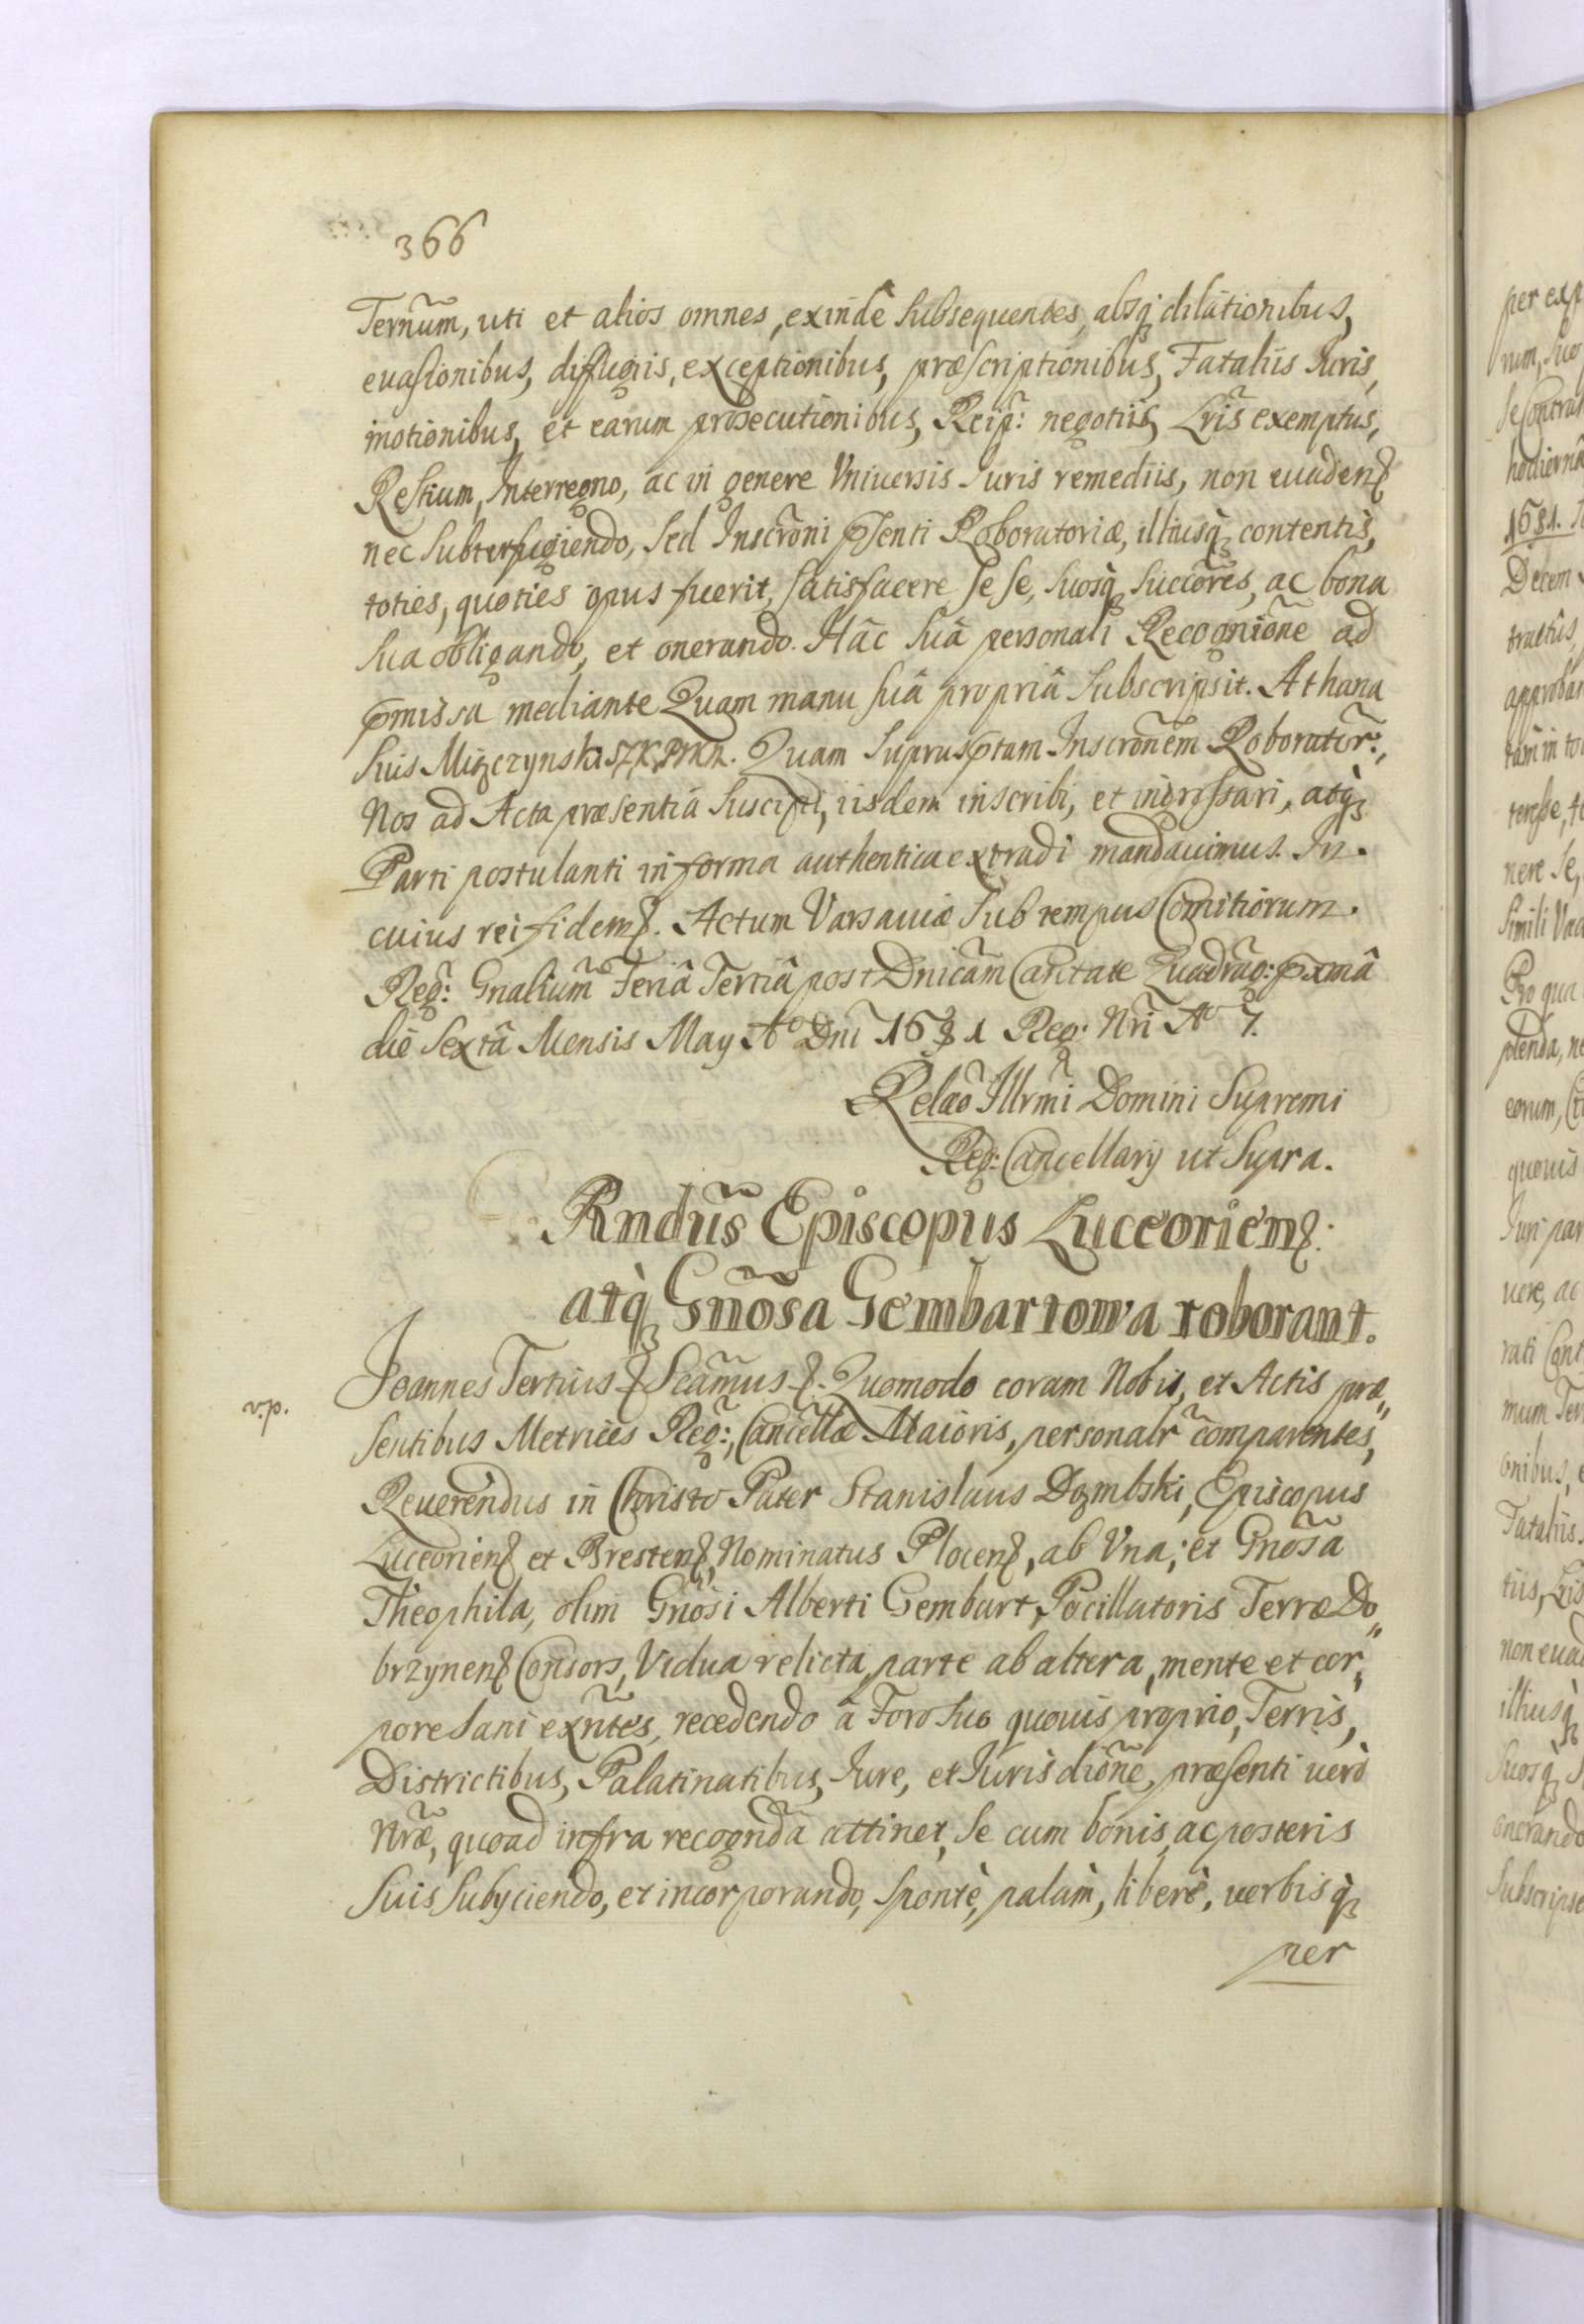 366
Ternũm, uti et alios omnes, exindè subsequentes, absq; dilationibus,
evasionibus, diffugiis, exceptionibus, præscriptionibus, Fataliis Iuris,
motionibus, et earum prosecutionibus, Reip: negotiis, Lris exemptus,
Restium, Interregno, ac in genere Vniuersis Iuris remediis, non euaden
nec subterfugiendo, sed Inscrõni pñsenti Roboratoriæ, illiusq; contentis,
toties, quoties opus fuerit, satisfacere se se, suosq; succõres, ac bona
sua obligando, et onerando. Hâc suâ personali Recognĩone ad
p̃missa mediante Quam manu suâ propriâ subscripsit. Athana
sius Miączynski SZKPMK. Quam supraspt̃am Inscrõnem Roborator:,
Nos ad Acta præsentia suscipi, iisdem inscribi, et ingrossari, atq;
Parti postulanti in forma authentica extradi mandauimus. In
cuius rei fidem. Actum Varsauiæ sub tempus Comitiorum
Reg: Gñalium Feriâ Tertiâ post Dnicãm Cantate Quadrag: p̃ximâ
die sextâ Mensis May Aº Dni 1681 Reg: Nri Aº 7.
Relaõ Illr̃mi Domini Supremi
Reg: Cancellarij ut supra.
Rndũs Episcopus Luceorien:
atq; Gnõsa Gembartowa roborant.
v.p.
Ioannes Tertius Seãmus Quomodo coram Nobis, et Actis præ„
sentibus Metrices Reg:, Cancellæ Maioris, personalr̃ comparentes,
Reuerendus in Christo Pater Stanislaus Dąmbski, Episcopus
Luceorien et Bresten, Nominatus Plocen, ab Vna; et Gnõsa
Theophila, olim Gnõsi Alberti Gembart, Pocillatoris Terræ Do„
brzynen Consors, Vidua relicta, parte ab altera, mente et cor„
pore sani exñtes, recedendo â Foro suo quouis proprio, Terris,
Districtibus, Palatinatibus, Iure, et Iurisdiõne, præsenti verò
Nr̃æ, quoad infra recogñda attinet, se cum bonis, ac posteris
suis subyciendo, et incorporando, spontè, palàm, liberè, uerbisq;
per